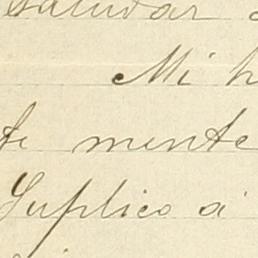 saludar
Mi h
te mente
Suplico á